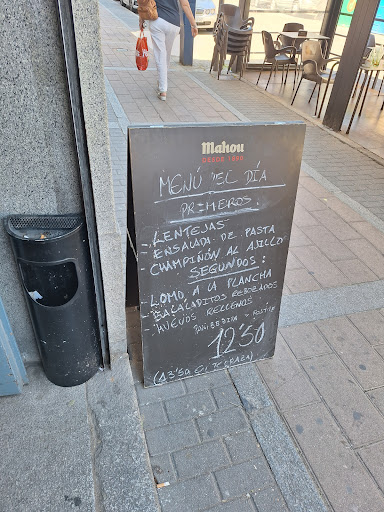 Mahou
DESDE 1890
MENÚ DEL DÍA
PRIMEROS:
- LENTEJAS
- ENSALADA DE PASTA
- CHAMPIÑÓN AL AJILLO
SEGUNDOS:
- LOMO A LA PLANCHA
- BACALADITOS REBOZADOS
- HUEVOS RELLENOS
PAN, BEBIDA Y POSTRE
12'50
(13'50 EN TERRAZA)